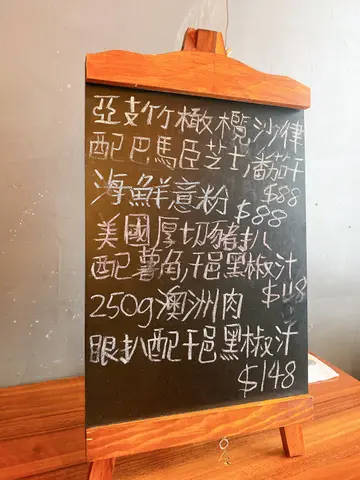 亞支竹橄欖沙律
配巴馬臣芝士,番茄干
$88
海鮮意粉 $88
美國厚切豬扒
配薯角,干邑黑椒汁
$118
250g澳洲肉
眼扒配干邑黑椒汁
$148